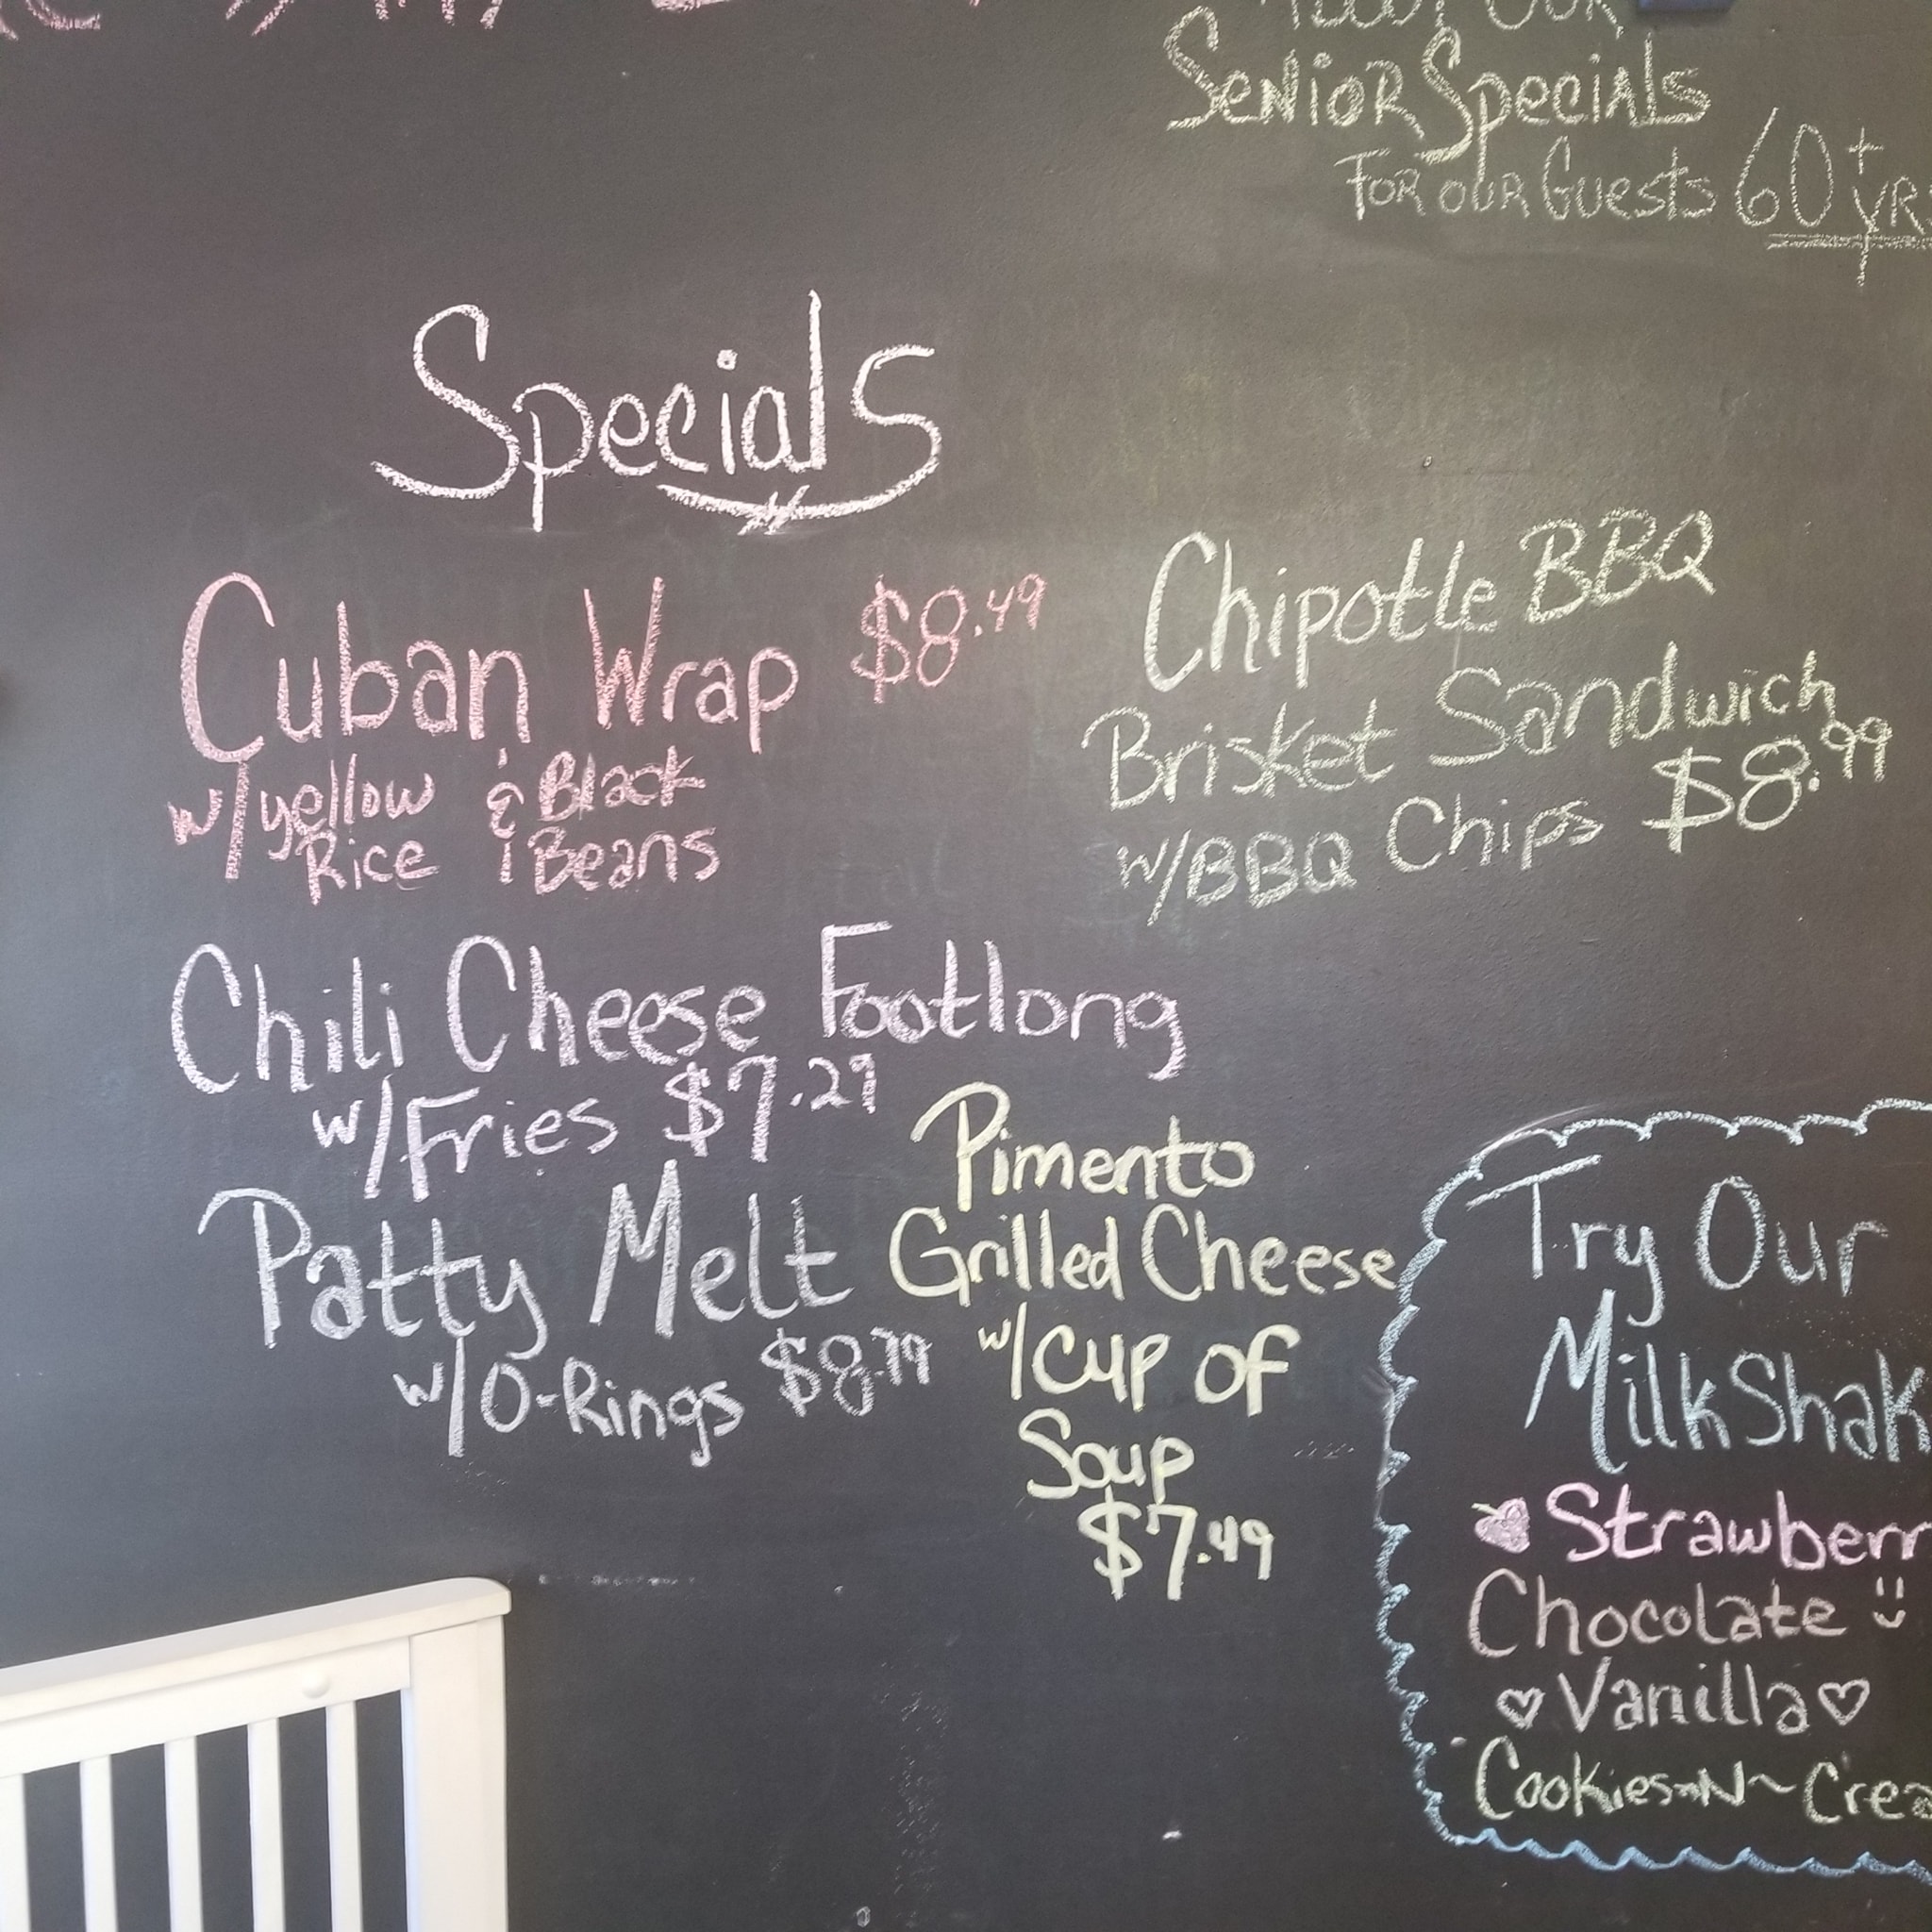 OUR
Senior Specials
For our Guests 60+ yr
Specials
Cuban Wrap $8.49
w/yellow & Black
Rice Beans
Chili Cheese Footlong
w/Fries $7.29
Patty Melt
w/O-Rings $8.79
Chipotle BBQ
Brisket Sandwich
w/BBQ Chips $8.99
Pimento
Grilled Cheese
w/cup of
Soup
$7.49
Try Our
MilkShak
Strawberr
Chocolate
Vanilla
Cookies~N~Crea